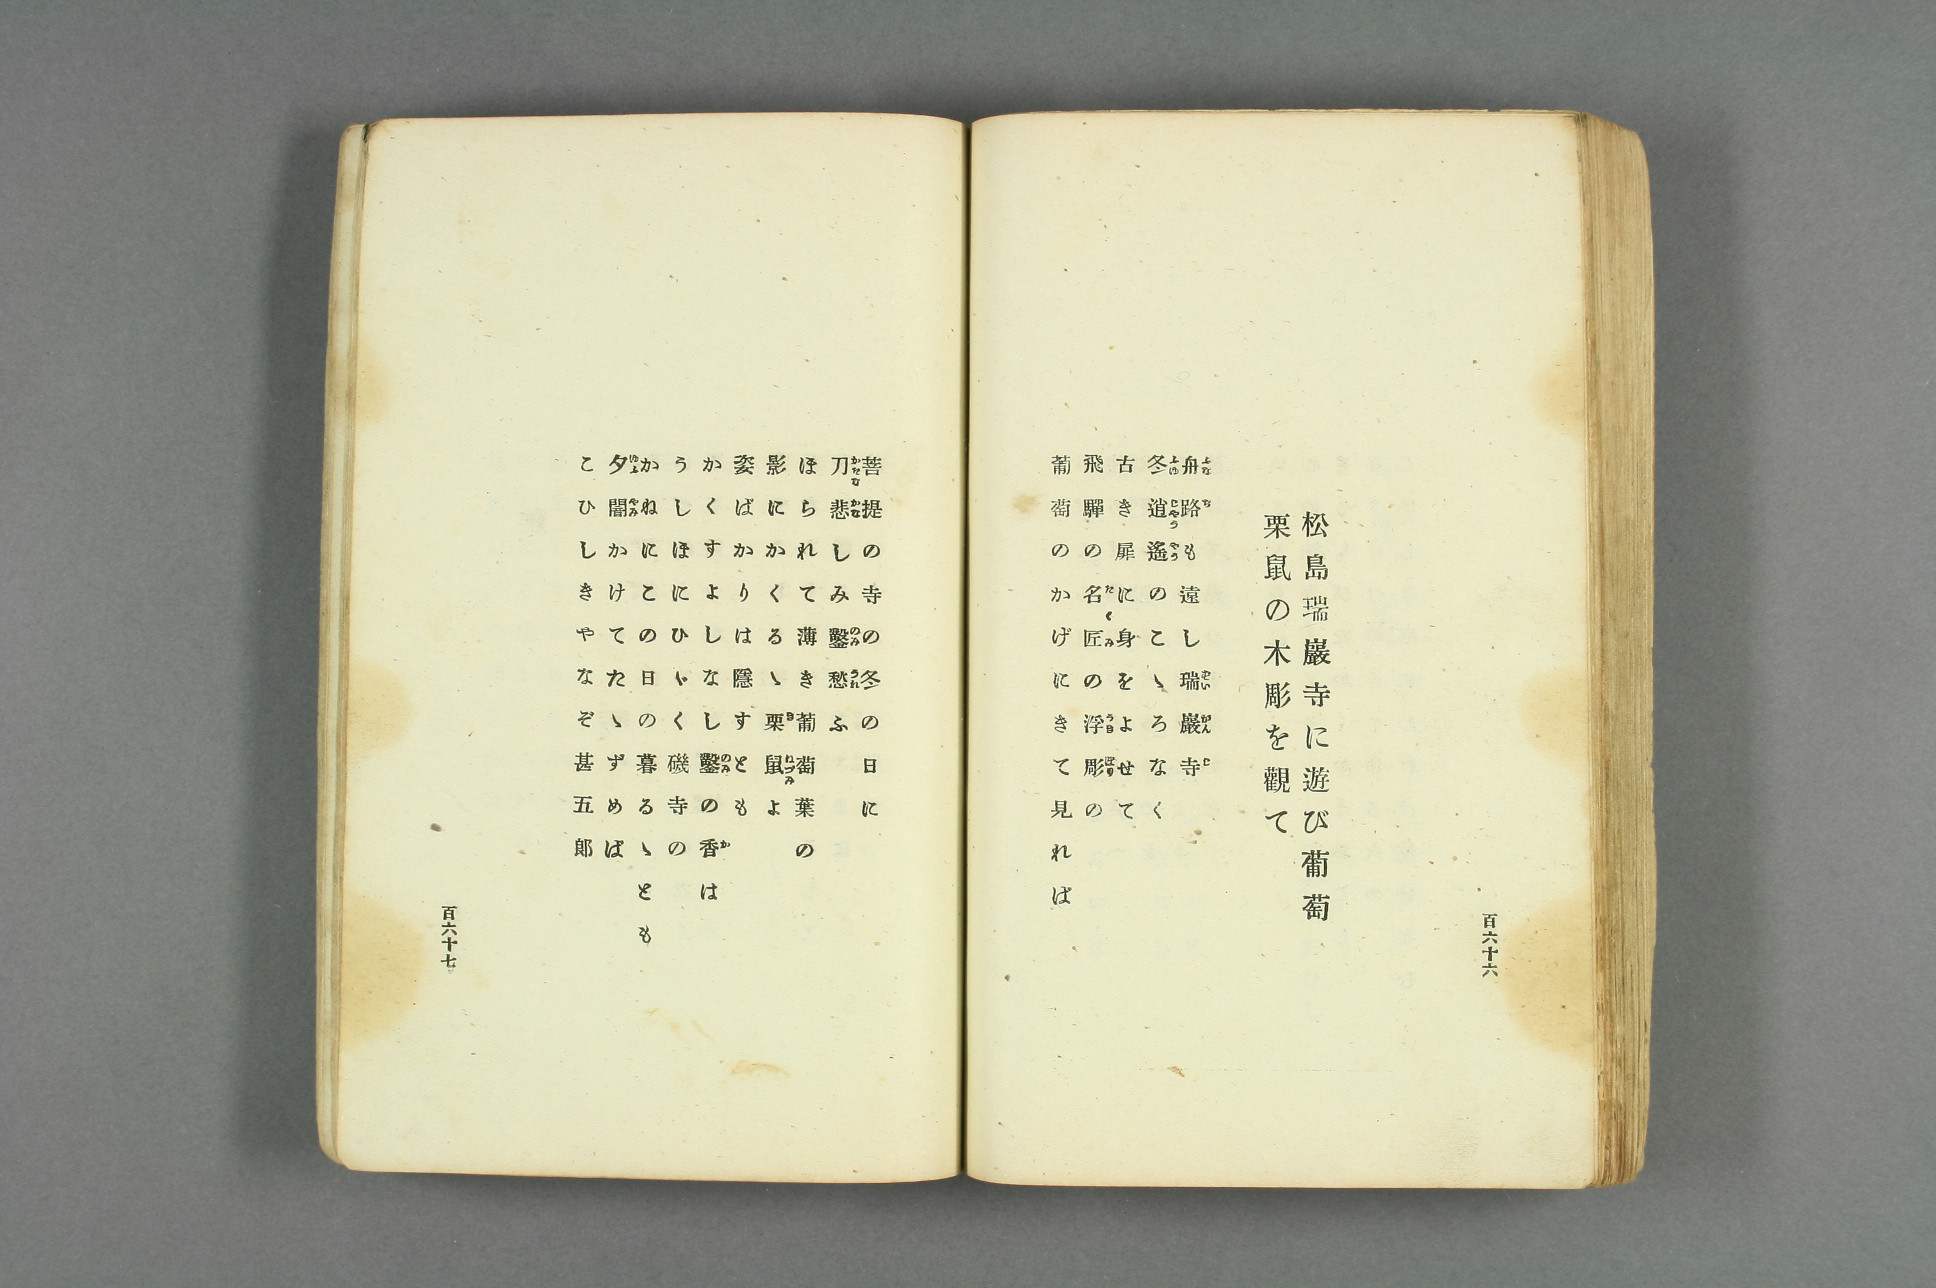 百六十六
松島瑞巖寺に遊び葡萄
栗鼠の木彫を觀て
舟路も遠し瑞巖寺
冬逍遙のこゝろなく
古き扉に身をよせて
飛驒の名匠の浮彫の
葡萄のかげにきて見れば
菩提の寺の冬の日に
刀悲しみ鑿愁ふ
ほられて薄き葡萄葉の
影にかくるゝ栗鼠よ
姿ばかりは隱すとも
かくすよしなし鑿の香は
うしほにひゞく磯寺の
かねにこの日の暮るゝとも
夕闇かけてたゝずめば
こひしきやなぞ甚五郎
百六十七